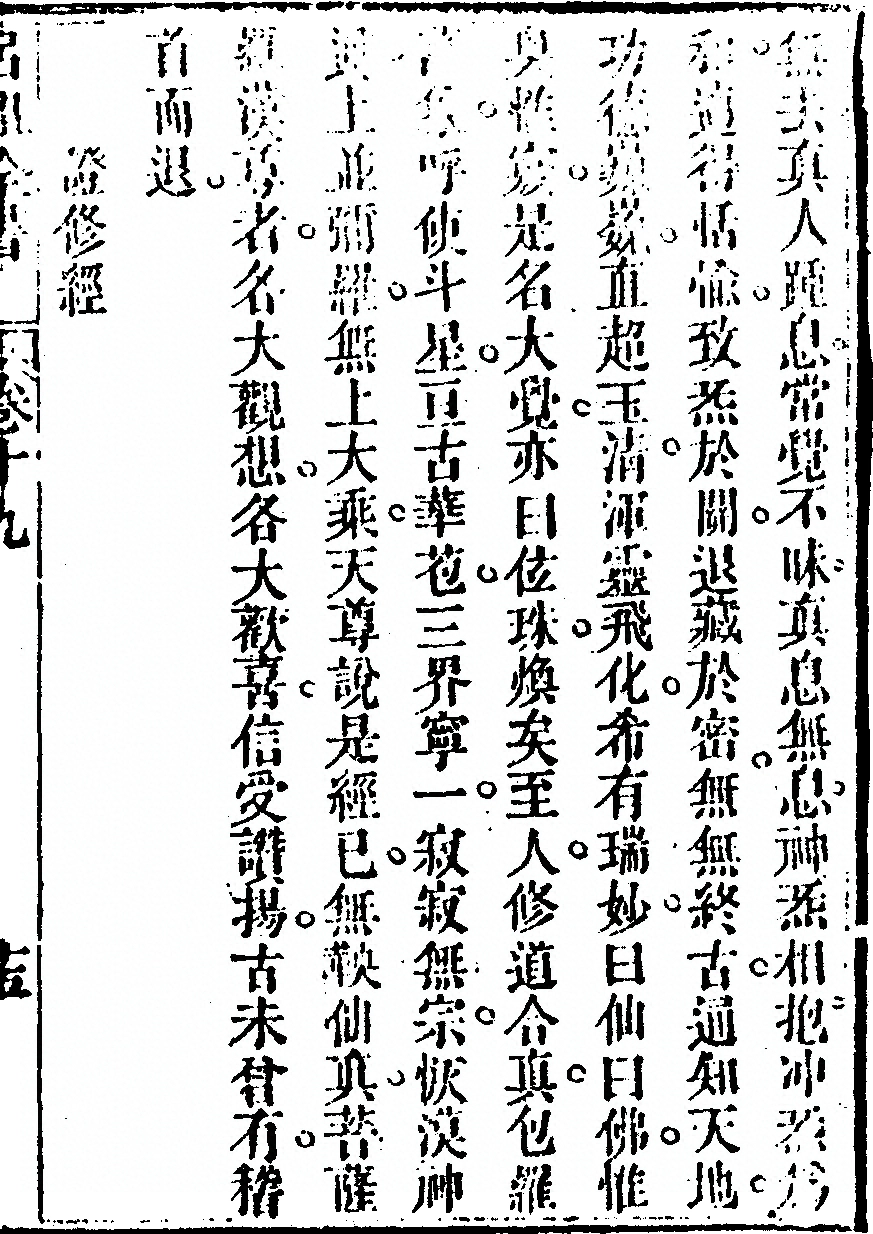 無去真人踵息常覺不昧真息無息神炁相抱冲炁為
和道得恬愉致炁於關退藏於密無無終古通知天地
功德巍巍直超玉清渾靈飛化希有瑞妙曰仙曰佛惟
具惟寂是名大覺亦曰位珠煥矣至人修道合真包羅
呼使斗星亘古華苞三界寧一寂寂無宗恢漠神
上並彌羅無上大乘天尊說是經已無鞅仙真菩薩
羅漢尊者名大觀想各大歡喜信受讚揚古未曾有稽
首而退
證修經
呂祖全書 卷十九